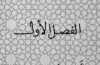 الفصل الأول